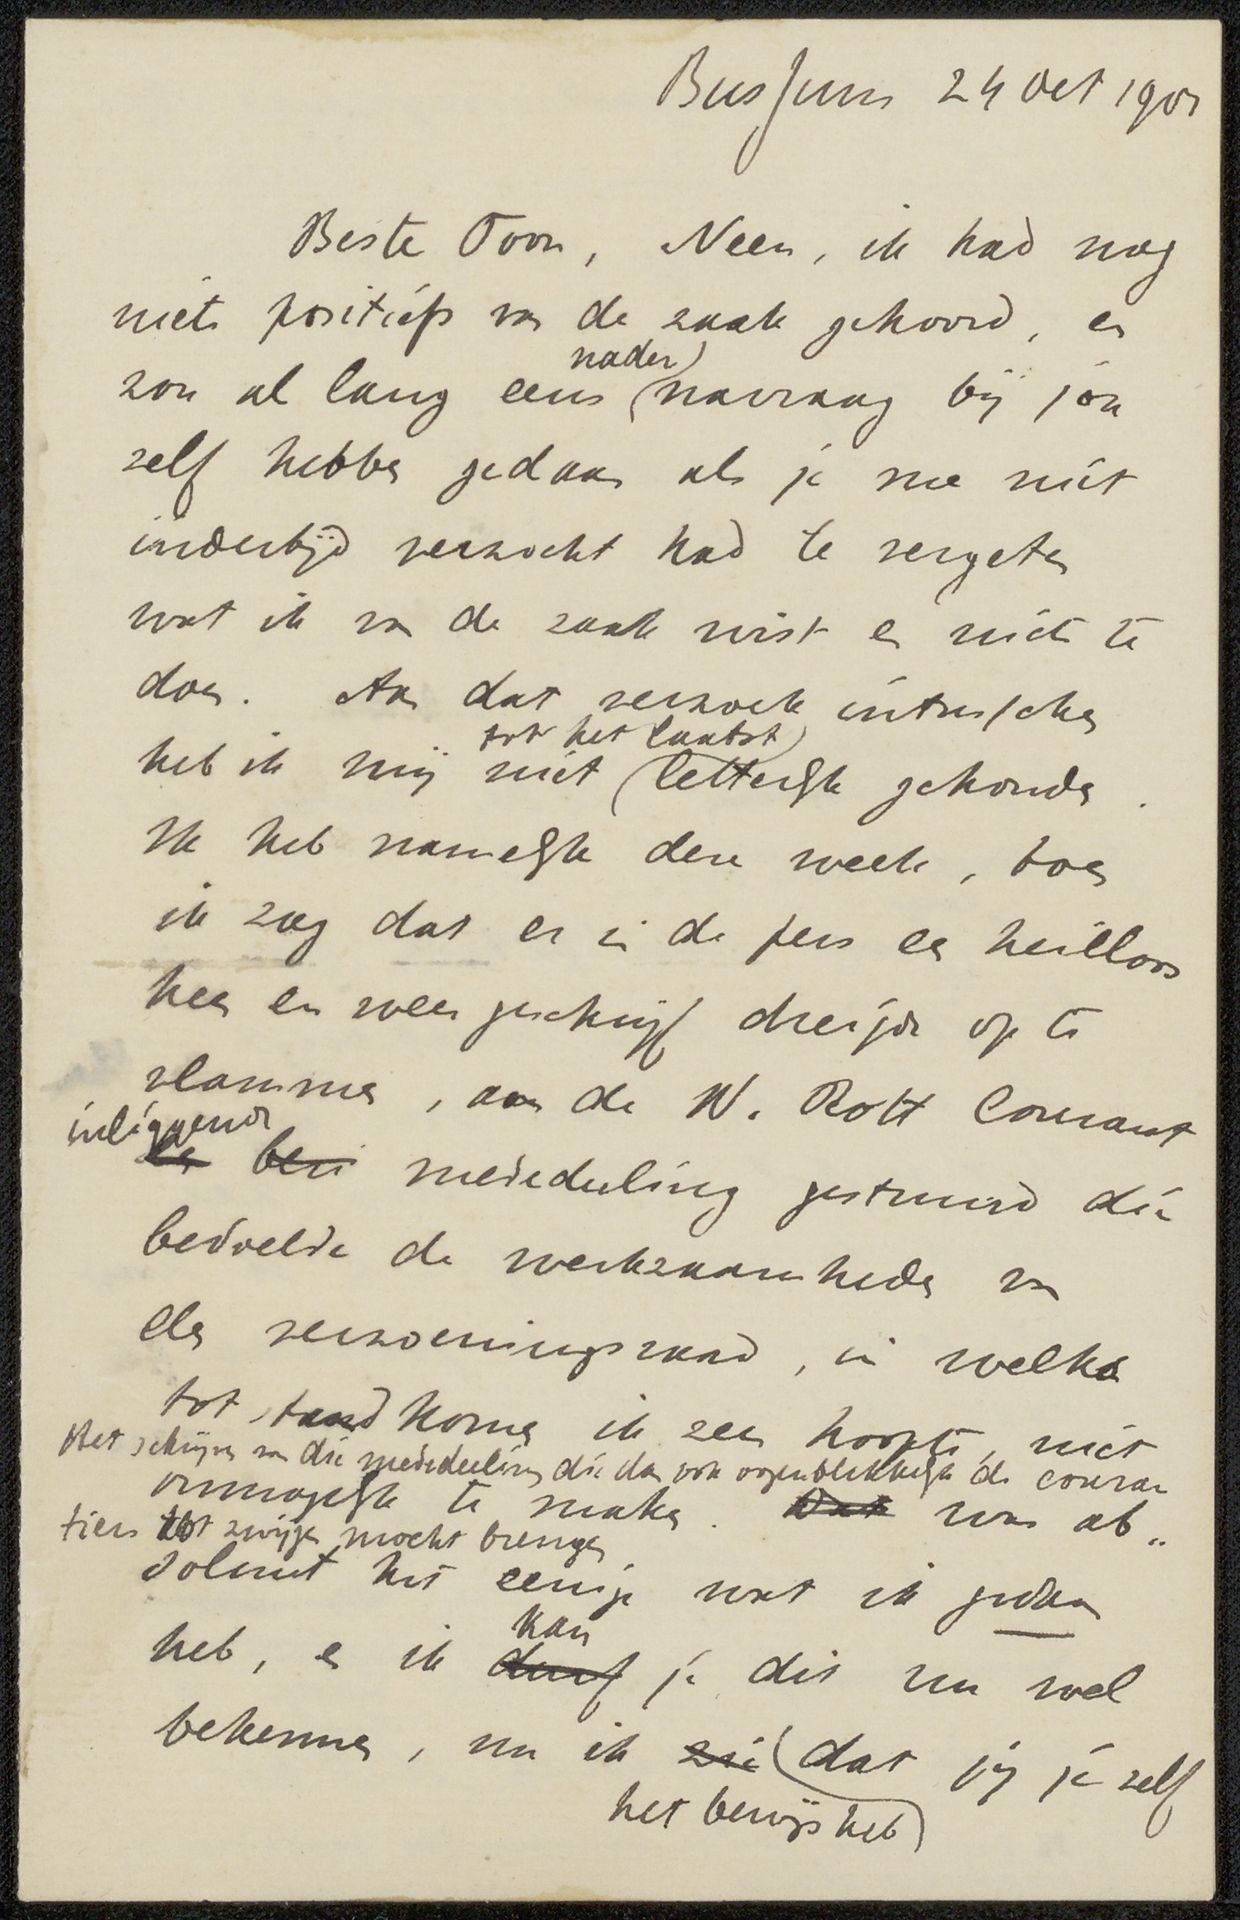 Bussum 24 Oct 1901
Beste Toon, Neen, ik had nog
niets positiefs van de zaak gehoord, en
nader
zou al lang eens navraag bij jou
zelf hebben gedaan als je me niet
indertijd verzocht had te vergeten
wat ik van de zaak wist en niets te
doen. Aan dat verzoek intusschen
tot het laatst
heb ik mij niet letterlijk gehouden.
Ik heb namelijk deze week, toen
ik zag dat er in de pers een heilloos
heen en weer geschrijf dreigde op te
vlammen, aan de N. Rott Courant
inliggende
een beri mededeeling gestuurd die
bedoelde de werkzaamheden van
den verzoeningsraad, in welks
tot stand komen ik zeer hoopte, niet
Het schrijven van die mededeeling die dan ook oogenblikkelijk de couran
onmogelijk te maken. Dat was ab-
tiers tot zwijgen mocht brengen
soluut het eenige wat ik gedaan
kan
heb, en ik durf je dit nu wel
bekennen, nu ik zie dat jij je zelf
het bewijs heb